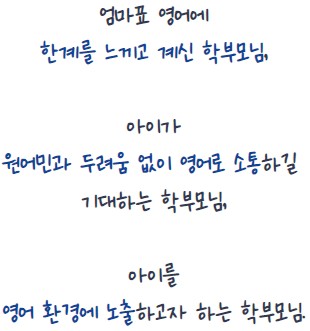 엄마표 영어에
한계를 느끼고 계신 학부모님,
아이가
원어민과 두려움 없이 영어로 소통하길
기대하는 학부모님,
아이를
영어 환경에 노출하고자 하는 학부모님.